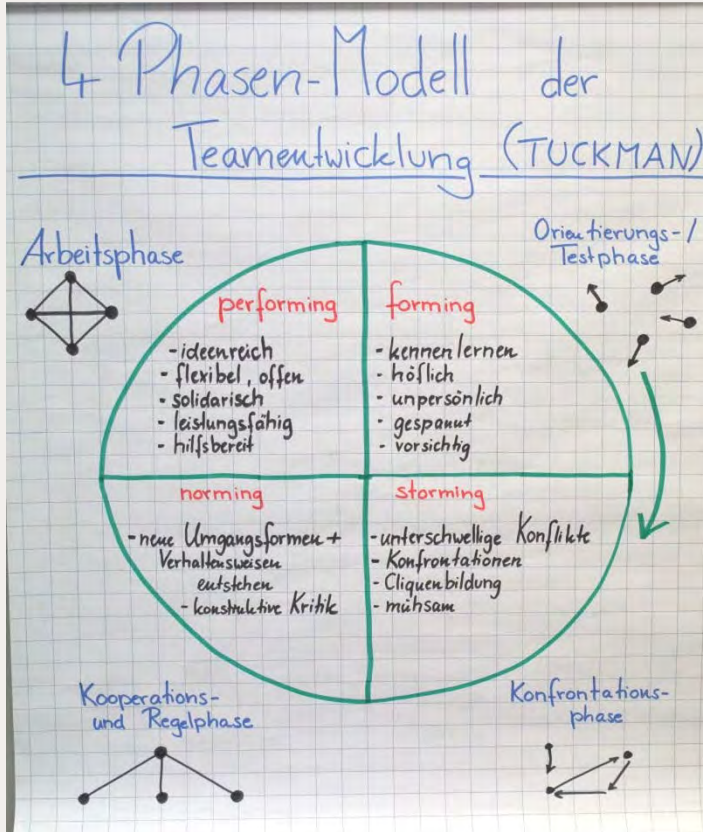 4 Phasen-Modell der
Teamentwicklung (TUCKMAN)
Arbeitsphase
Orientierungs-/
Testphase
performing
- ideenreich
- flexibel, offen
- solidarisch
- leistungsfähig
- hilfsbereit
forming
- kennenlernen
- höflich
- unpersönlich
- gespannt
- vorsichtig
norming
- neue Umgangsformen +
Verhaltensweisen
entstehen
- konstruktive Kritik
storming
- unterschwellige Konflikte
- Konfrontationen
- Cliquenbildung
- mühsam
Kooperations-
und Regelphase
Konfrontations-
phase